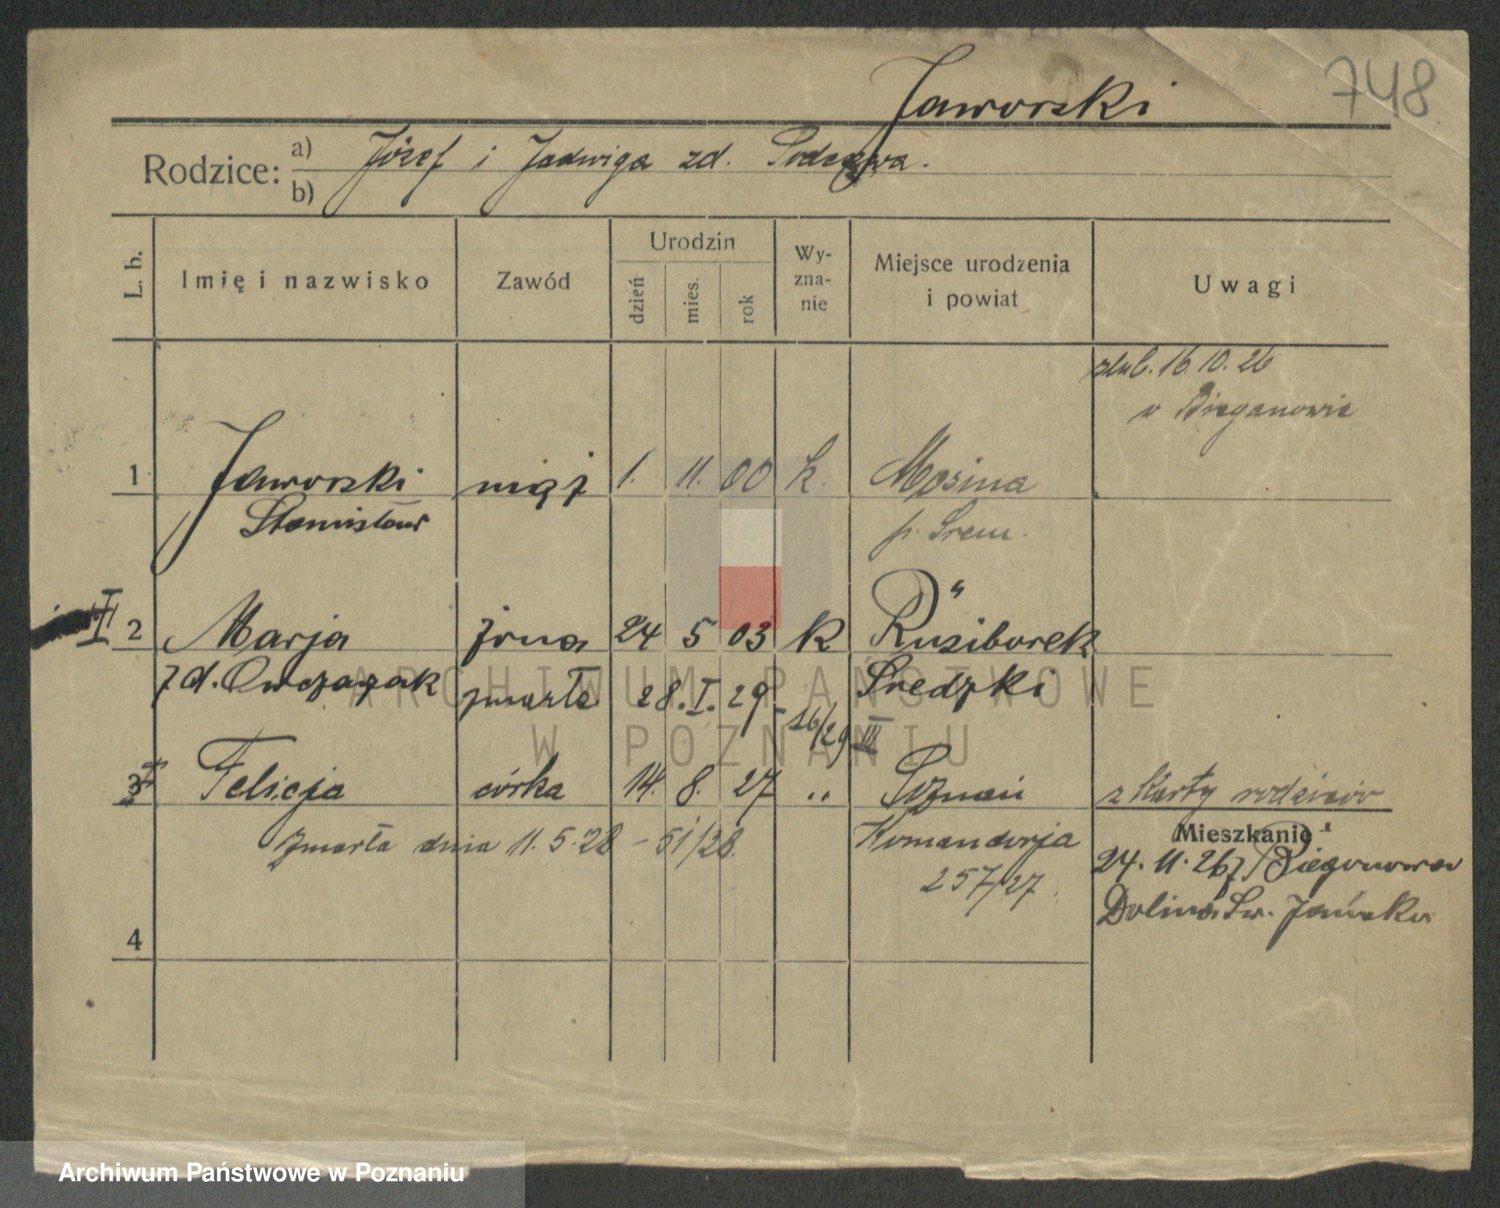 748
Jaworski
Rodzice: a) Józef i Jadwiga zd.
b)
L. b. Imię i nazwisko Zawód Urodzin dzień mies. rok Wy-zna-nie Miejsce urodzenia i powiat Uwagi
ślub. 16.10.26
w Bieganowie
1 Jaworski mąż 1. 11. 00 k. Mosina
Stanisław p. Śrem.
I 2 Marja żona 24 5 03 k Rusiborek
zd. Owczarzak zmarła 28.I.29 - 16/29 III Średzki
3 Felicja córka 14. 8. 27 " Poznań z karty rodziców
zmarła dnia 11.5.28 - 51/28. Komandorja
257/27.
Mieszkanie
24.11.26 z Bieganowa
Dolina Św. Jańska
4
ARCHIWUM PAŃSTWOWE
W POZNANIU
Archiwum Państwowe w Poznaniu